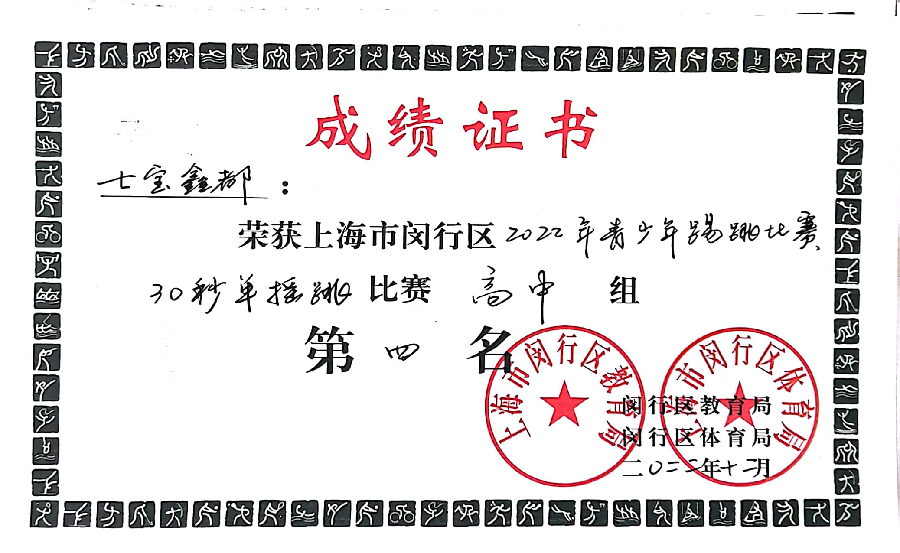 成绩证书
七宝鑫都：
荣获上海市闵行区2022年青少年踢跳比赛
30秒单摇跳比赛 高中 组
第四名
上海市闵行区教育局
上海市闵行区体育局
闵行区教育局
闵行区体育局
二〇二二年十二月